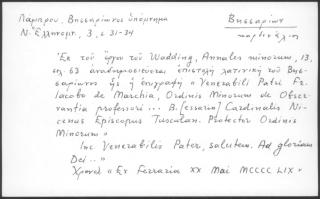 Λάμπρου, Βησσαρίωνος ὑπόμνημα
Ν. Ἑλληνομν., 3, σ. 31-34
Βησσαρίων
καρδινάλιος
Ἐκ τοῦ ἔργου τοῦ Wadding, Annales minorum, 13,
σελ. 63 ἀναδημοσιεύεται ἐπιστολὴ λατινικὴ τοῦ Βησ-
σαρίωνος ἧς ἡ ἐπιγραφὴ "Venerabili Patri Fr.
Iacobo de Marchia, Ordinis Minorum de Obser-
vantia professori ... B.[essario] Cardinalis Ni-
cenus Episcopus Tusculan. Protector Ordinis
Minorum"
Inc Venerabilis Pater, salutem. Ad gloriam
Dei .."
Χρονολ "Ex Ferraria XX Mai MCCCC LIX"